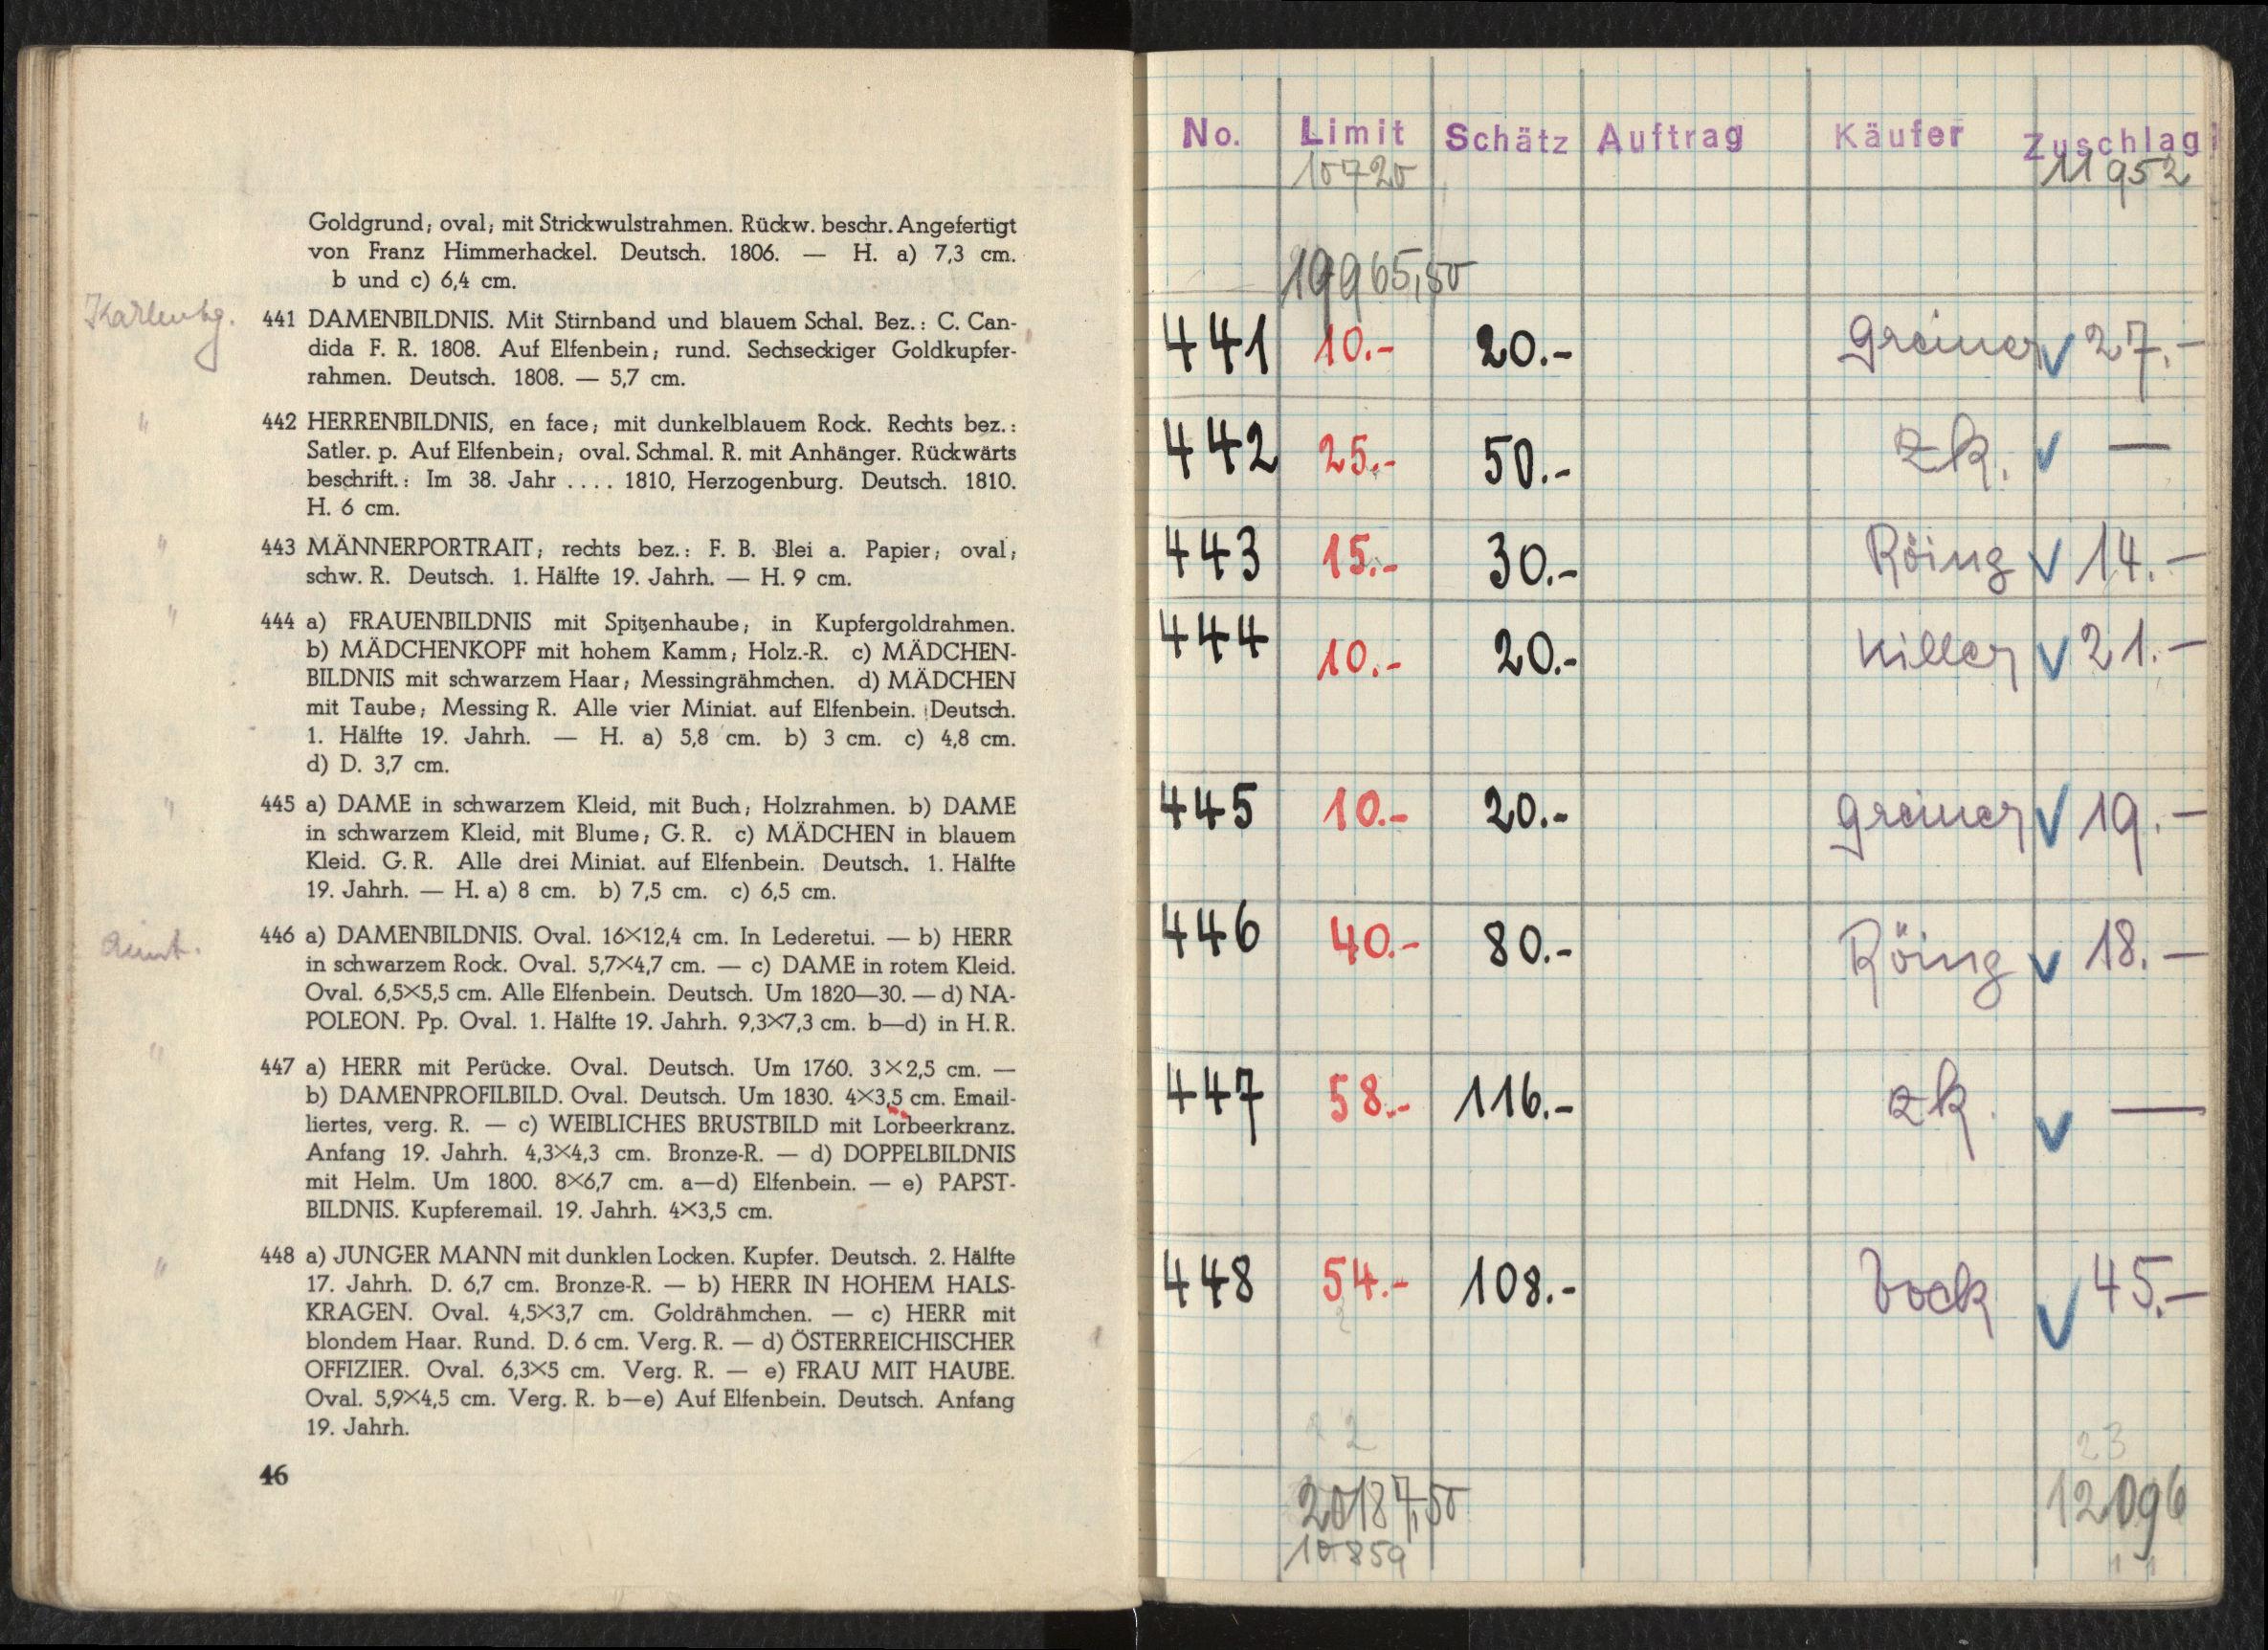 Goldgrund; oval; mit Strickwulstrahmen. Rückw. beschr. Angefertigt
von Franz Himmerhackel. Deutsch. 1806. — H. a) 7,3 cm.
b und c) 6,4 cm.
441 DAMENBILDNIS. Mit Stirnband und blauem Schal. Bez.: C. Can-
dida F. R. 1808. Auf Elfenbein; rund. Sechseckiger Goldkupfer-
rahmen. Deutsch. 1808. — 5,7 cm.
" 442 HERRENBILDNIS, en face; mit dunkelblauem Rock. Rechts bez.:
Satler. p. Auf Elfenbein; oval. Schmal. R. mit Anhänger. Rückwärts
beschrift.: Im 38. Jahr .... 1810, Herzogenburg. Deutsch. 1810.
H. 6 cm.
" 443 MÄNNERPORTRAIT; rechts bez.: F. B. Blei a. Papier; oval;
schw. R. Deutsch. 1. Hälfte 19. Jahrh. — H. 9 cm.
" 444 a) FRAUENBILDNIS mit Spitzenhaube; in Kupfergoldrahmen.
b) MÄDCHENKOPF mit hohem Kamm; Holz.-R. c) MÄDCHEN-
BILDNIS mit schwarzem Haar; Messingrähmchen. d) MÄDCHEN
mit Taube; Messing R. Alle vier Miniat. auf Elfenbein. Deutsch.
1. Hälfte 19. Jahrh. — H. a) 5,8 cm. b) 3 cm. c) 4,8 cm.
d) D. 3,7 cm.
" 445 a) DAME in schwarzem Kleid, mit Buch; Holzrahmen. b) DAME
in schwarzem Kleid, mit Blume; G. R. c) MÄDCHEN in blauem
Kleid. G. R. Alle drei Miniat. auf Elfenbein. Deutsch. 1. Hälfte
19. Jahrh. — H. a) 8 cm. b) 7,5 cm. c) 6,5 cm.
446 a) DAMENBILDNIS. Oval. 16×12,4 cm. In Lederetui. — b) HERR
in schwarzem Rock. Oval. 5,7×4,7 cm. — c) DAME in rotem Kleid.
Oval. 6,5×5,5 cm. Alle Elfenbein. Deutsch. Um 1820—30. — d) NA-
POLEON. Pp. Oval. 1. Hälfte 19. Jahrh. 9,3×7,3 cm. b—d) in H. R.
" 447 a) HERR mit Perücke. Oval. Deutsch. Um 1760. 3×2,5 cm. —
b) DAMENPROFILBILD. Oval. Deutsch. Um 1830. 4×3,5 cm. Email-
liertes, verg. R. — c) WEIBLICHES BRUSTBILD mit Lorbeerkranz.
Anfang 19. Jahrh. 4,3×4,3 cm. Bronze-R. — d) DOPPELBILDNIS
mit Helm. Um 1800. 8×6,7 cm. a—d) Elfenbein. — e) PAPST-
BILDNIS. Kupferemail. 19. Jahrh. 4×3,5 cm.
" 448 a) JUNGER MANN mit dunklen Locken. Kupfer. Deutsch. 2. Hälfte
17. Jahrh. D. 6,7 cm. Bronze-R. — b) HERR IN HOHEM HALS-
KRAGEN. Oval. 4,5×3,7 cm. Goldrähmchen. — c) HERR mit
blondem Haar. Rund. D. 6 cm. Verg. R. — d) ÖSTERREICHISCHER
OFFIZIER. Oval. 6,3×5 cm. Verg. R. — e) FRAU MIT HAUBE.
Oval. 5,9×4,5 cm. Verg. R. b—e) Auf Elfenbein. Deutsch. Anfang
19. Jahrh.
46
No. Limit Schätz Auftrag Käufer Zuschlag
10720 11952
19965,50
441 10.- 20.- Greiner ✓ 27.-
442 25.- 50.- zk. ✓ —
443 15.- 30.- Röing ✓ 14.-
444 10.- 20.- Killer ✓ 21.-
445 10.- 20.- Greiner ✓ 19.-
446 40.- 80.- Röing ✓ 18.-
447 58.- 116.- zk. ✓ —
448 54.- 108.- Bock ✓ 45.-
2
2 2 23
20187,50 12096
10859